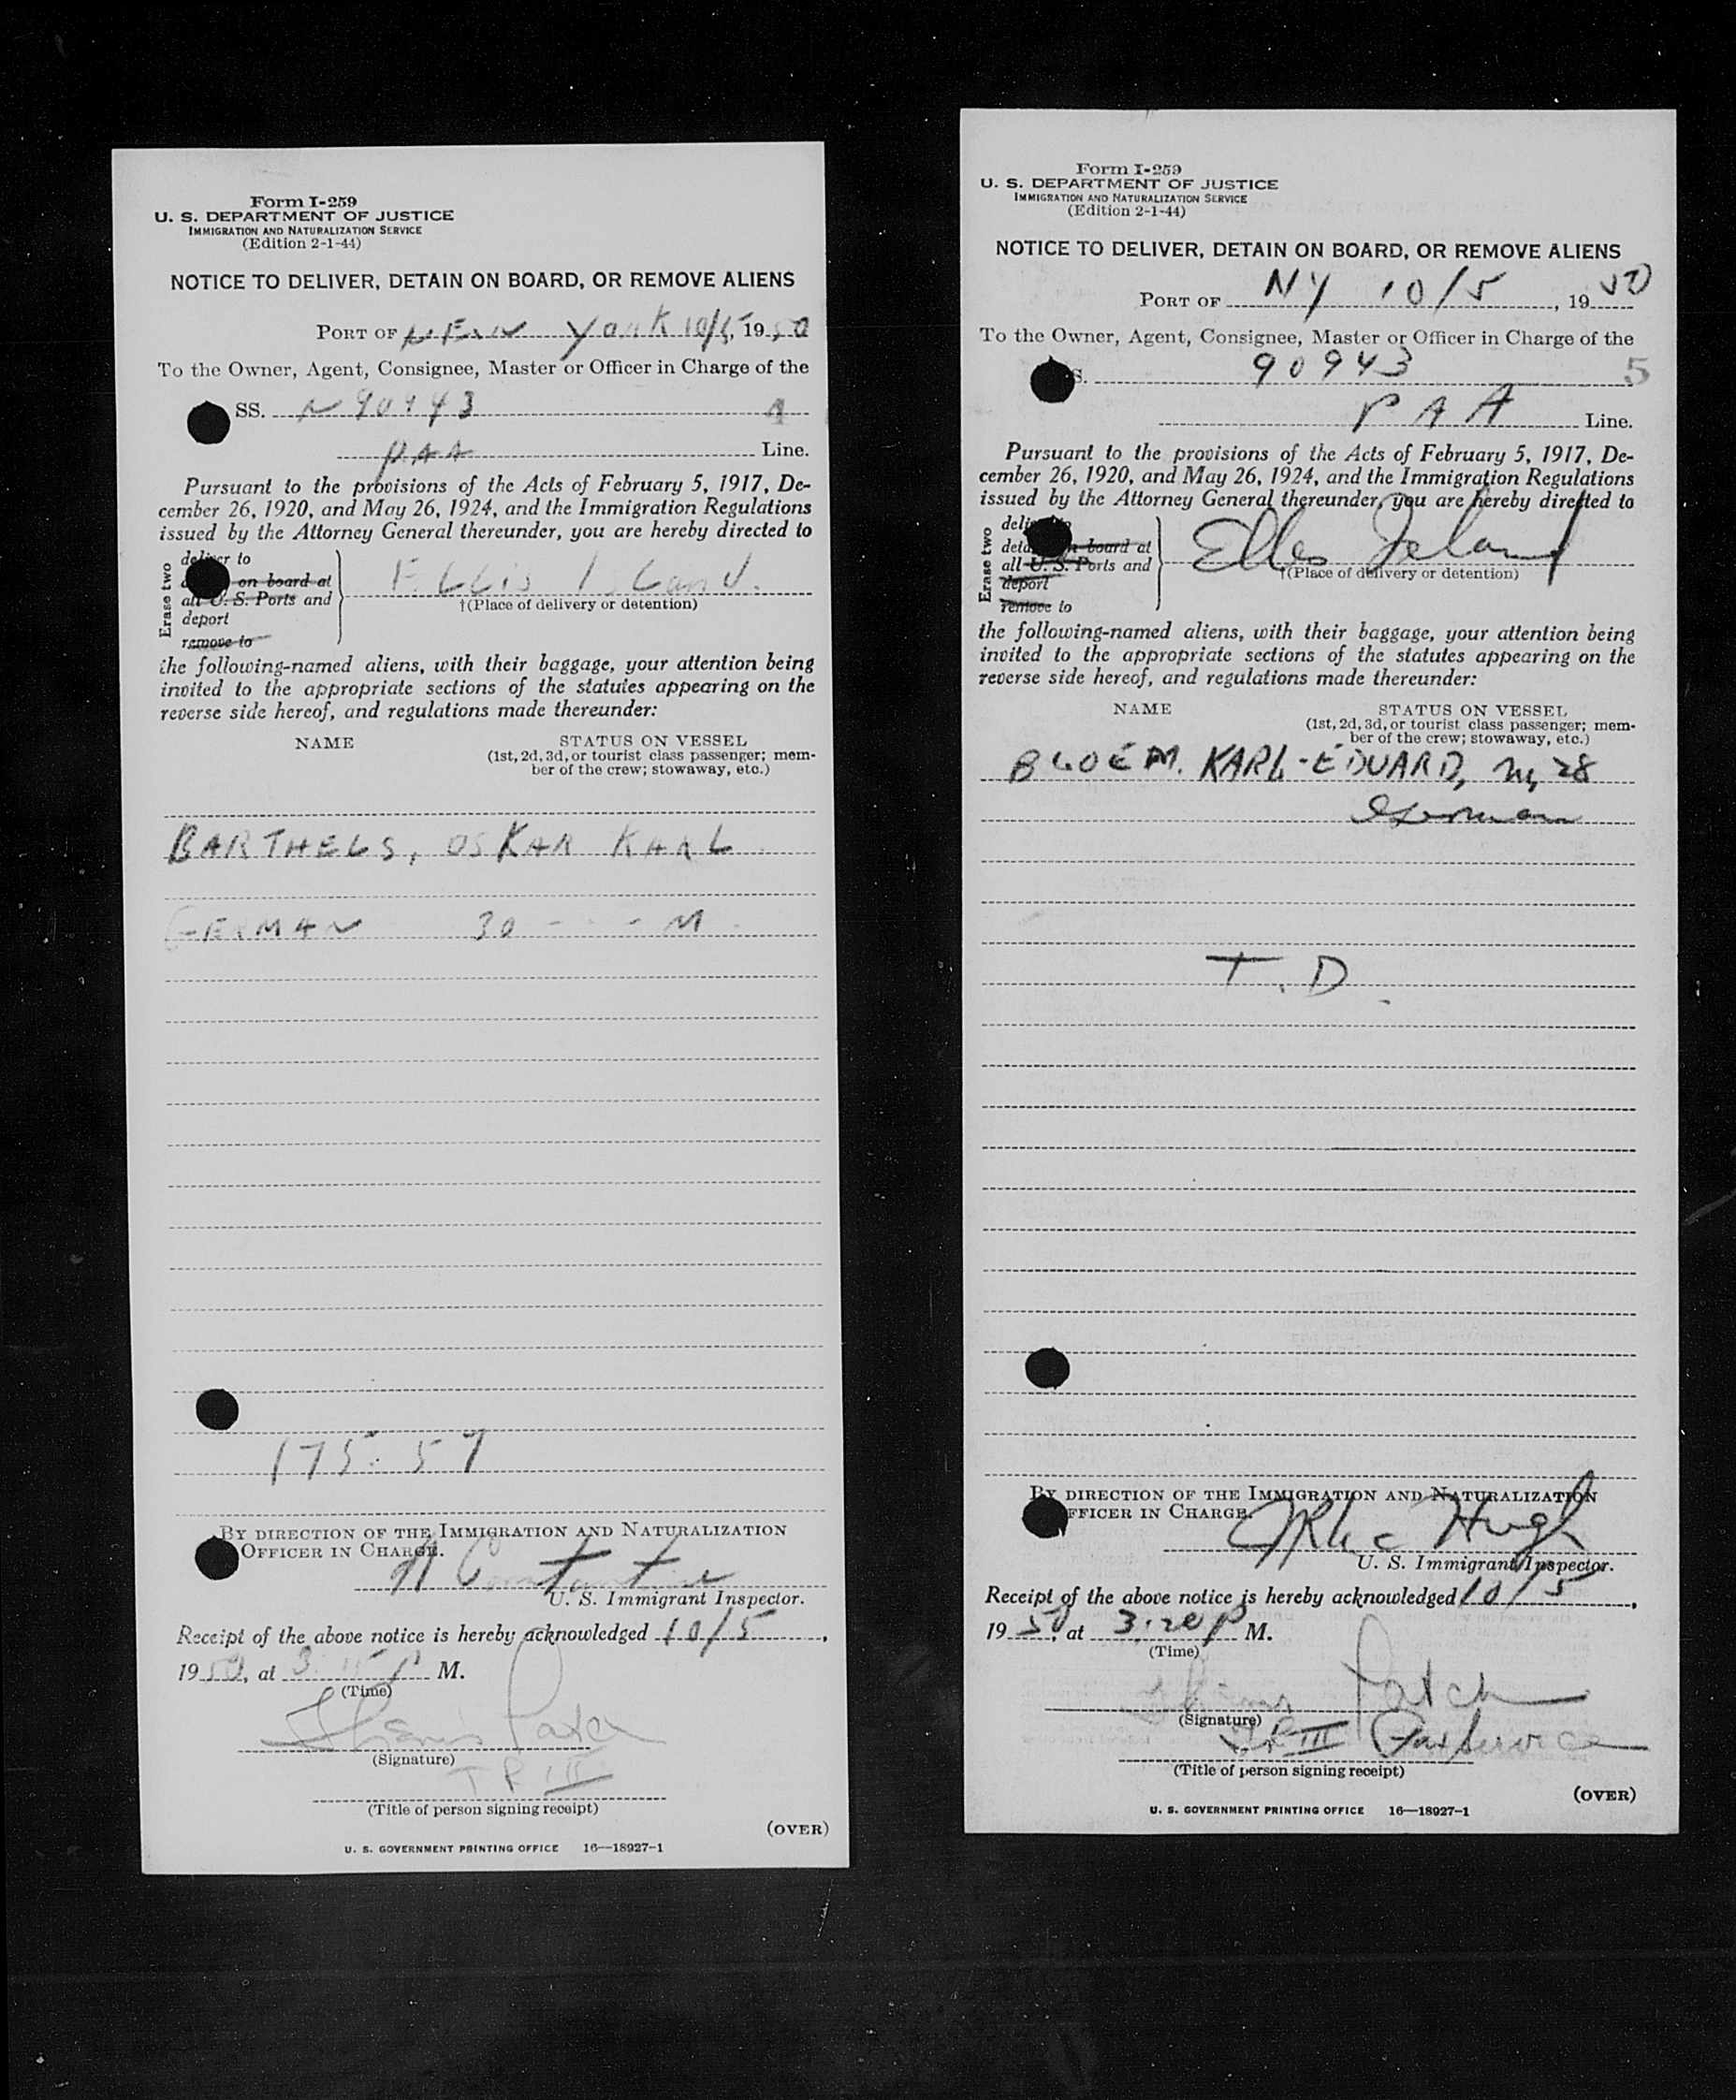 Form I-259
U. S. DEPARTMENT OF JUSTICE
IMMIGRATION AND NATURALIZATION SERVICE
(Edition 2-1-44)
NOTICE TO DELIVER, DETAIN ON BOARD, OR REMOVE ALIENS
PORT OF NEW YORK 10/5, 1950
To the Owner, Agent, Consignee, Master or Officer in Charge of the
SS. N 90943 4
PAA Line.
Pursuant to the provisions of the Acts of February 5, 1917, De-
cember 26, 1920, and May 26, 1924, and the Immigration Regulations
issued by the Attorney General thereunder, you are hereby directed to
Erase two
deliver to
on board at
all U. S. Ports and
deport
remove to
Ellis Island.
†(Place of delivery or detention)
the following-named aliens, with their baggage, your attention being
invited to the appropriate sections of the statutes appearing on the
reverse side hereof, and regulations made thereunder:
NAME STATUS ON VESSEL
(1st, 2d, 3d, or tourist class passenger; mem-
ber of the crew; stowaway, etc.)
BARTHELS, OSKAR KARL
GERMAN 30 - - - M
175:57
BY DIRECTION OF THE IMMIGRATION AND NATURALIZATION
OFFICER IN CHARGE.
U. S. Immigrant Inspector.
Receipt of the above notice is hereby acknowledged 10/5,
1950, at 3:15 P M.
(Time)
Patch
(Signature)
T R III
(Title of person signing receipt)
(OVER)
U. S. GOVERNMENT PRINTING OFFICE 16—18927-1
Form I-259
U. S. DEPARTMENT OF JUSTICE
IMMIGRATION AND NATURALIZATION SERVICE
(Edition 2-1-44)
NOTICE TO DELIVER, DETAIN ON BOARD, OR REMOVE ALIENS
PORT OF NY 10/5, 1950
To the Owner, Agent, Consignee, Master or Officer in Charge of the
S. 90943 5
PAA Line.
Pursuant to the provisions of the Acts of February 5, 1917, De-
cember 26, 1920, and May 26, 1924, and the Immigration Regulations
issued by the Attorney General thereunder, you are hereby directed to
Erase two
on board at
all U. S. Ports and
deport
remove to
Ellis Island
†(Place of delivery or detention)
the following-named aliens, with their baggage, your attention being
invited to the appropriate sections of the statutes appearing on the
reverse side hereof, and regulations made thereunder:
NAME STATUS ON VESSEL
(1st, 2d, 3d, or tourist class passenger; mem-
ber of the crew; stowaway, etc.)
BLOEM. KARL-EDUARD, M, 28
German
T. D.
BY DIRECTION OF THE IMMIGRATION AND NATURALIZATION
OFFICER IN CHARGE.
McHugh
U. S. Immigrant Inspector.
Receipt of the above notice is hereby acknowledged 10/5,
1950, at 3:20 P M.
(Time)
Patch
(Signature)
T.R. III Pax Service
(Title of person signing receipt)
(OVER)
U. S. GOVERNMENT PRINTING OFFICE 16—18927-1